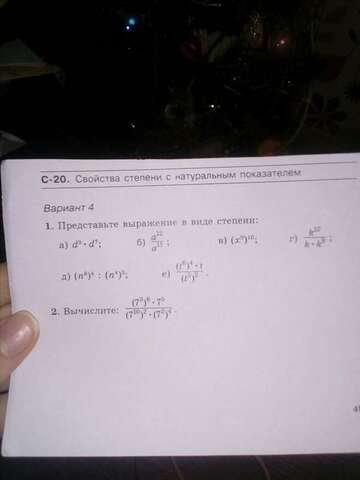 С-20. Свойства степени с натуральным показателем
Вариант 4
1. Представьте выражение в виде степени:
а) d⁹ · d⁷; б) a²²/a¹¹; в) (x⁹)¹⁰; г) k¹⁰/(k · k⁸);
д) (n⁸)⁴ : (n⁴)⁵; е) (t⁶)⁴ · t/(t⁵)².
2. Вычислите: (7³)⁶ · 7⁵/((7¹⁰)² · (7²)⁴).